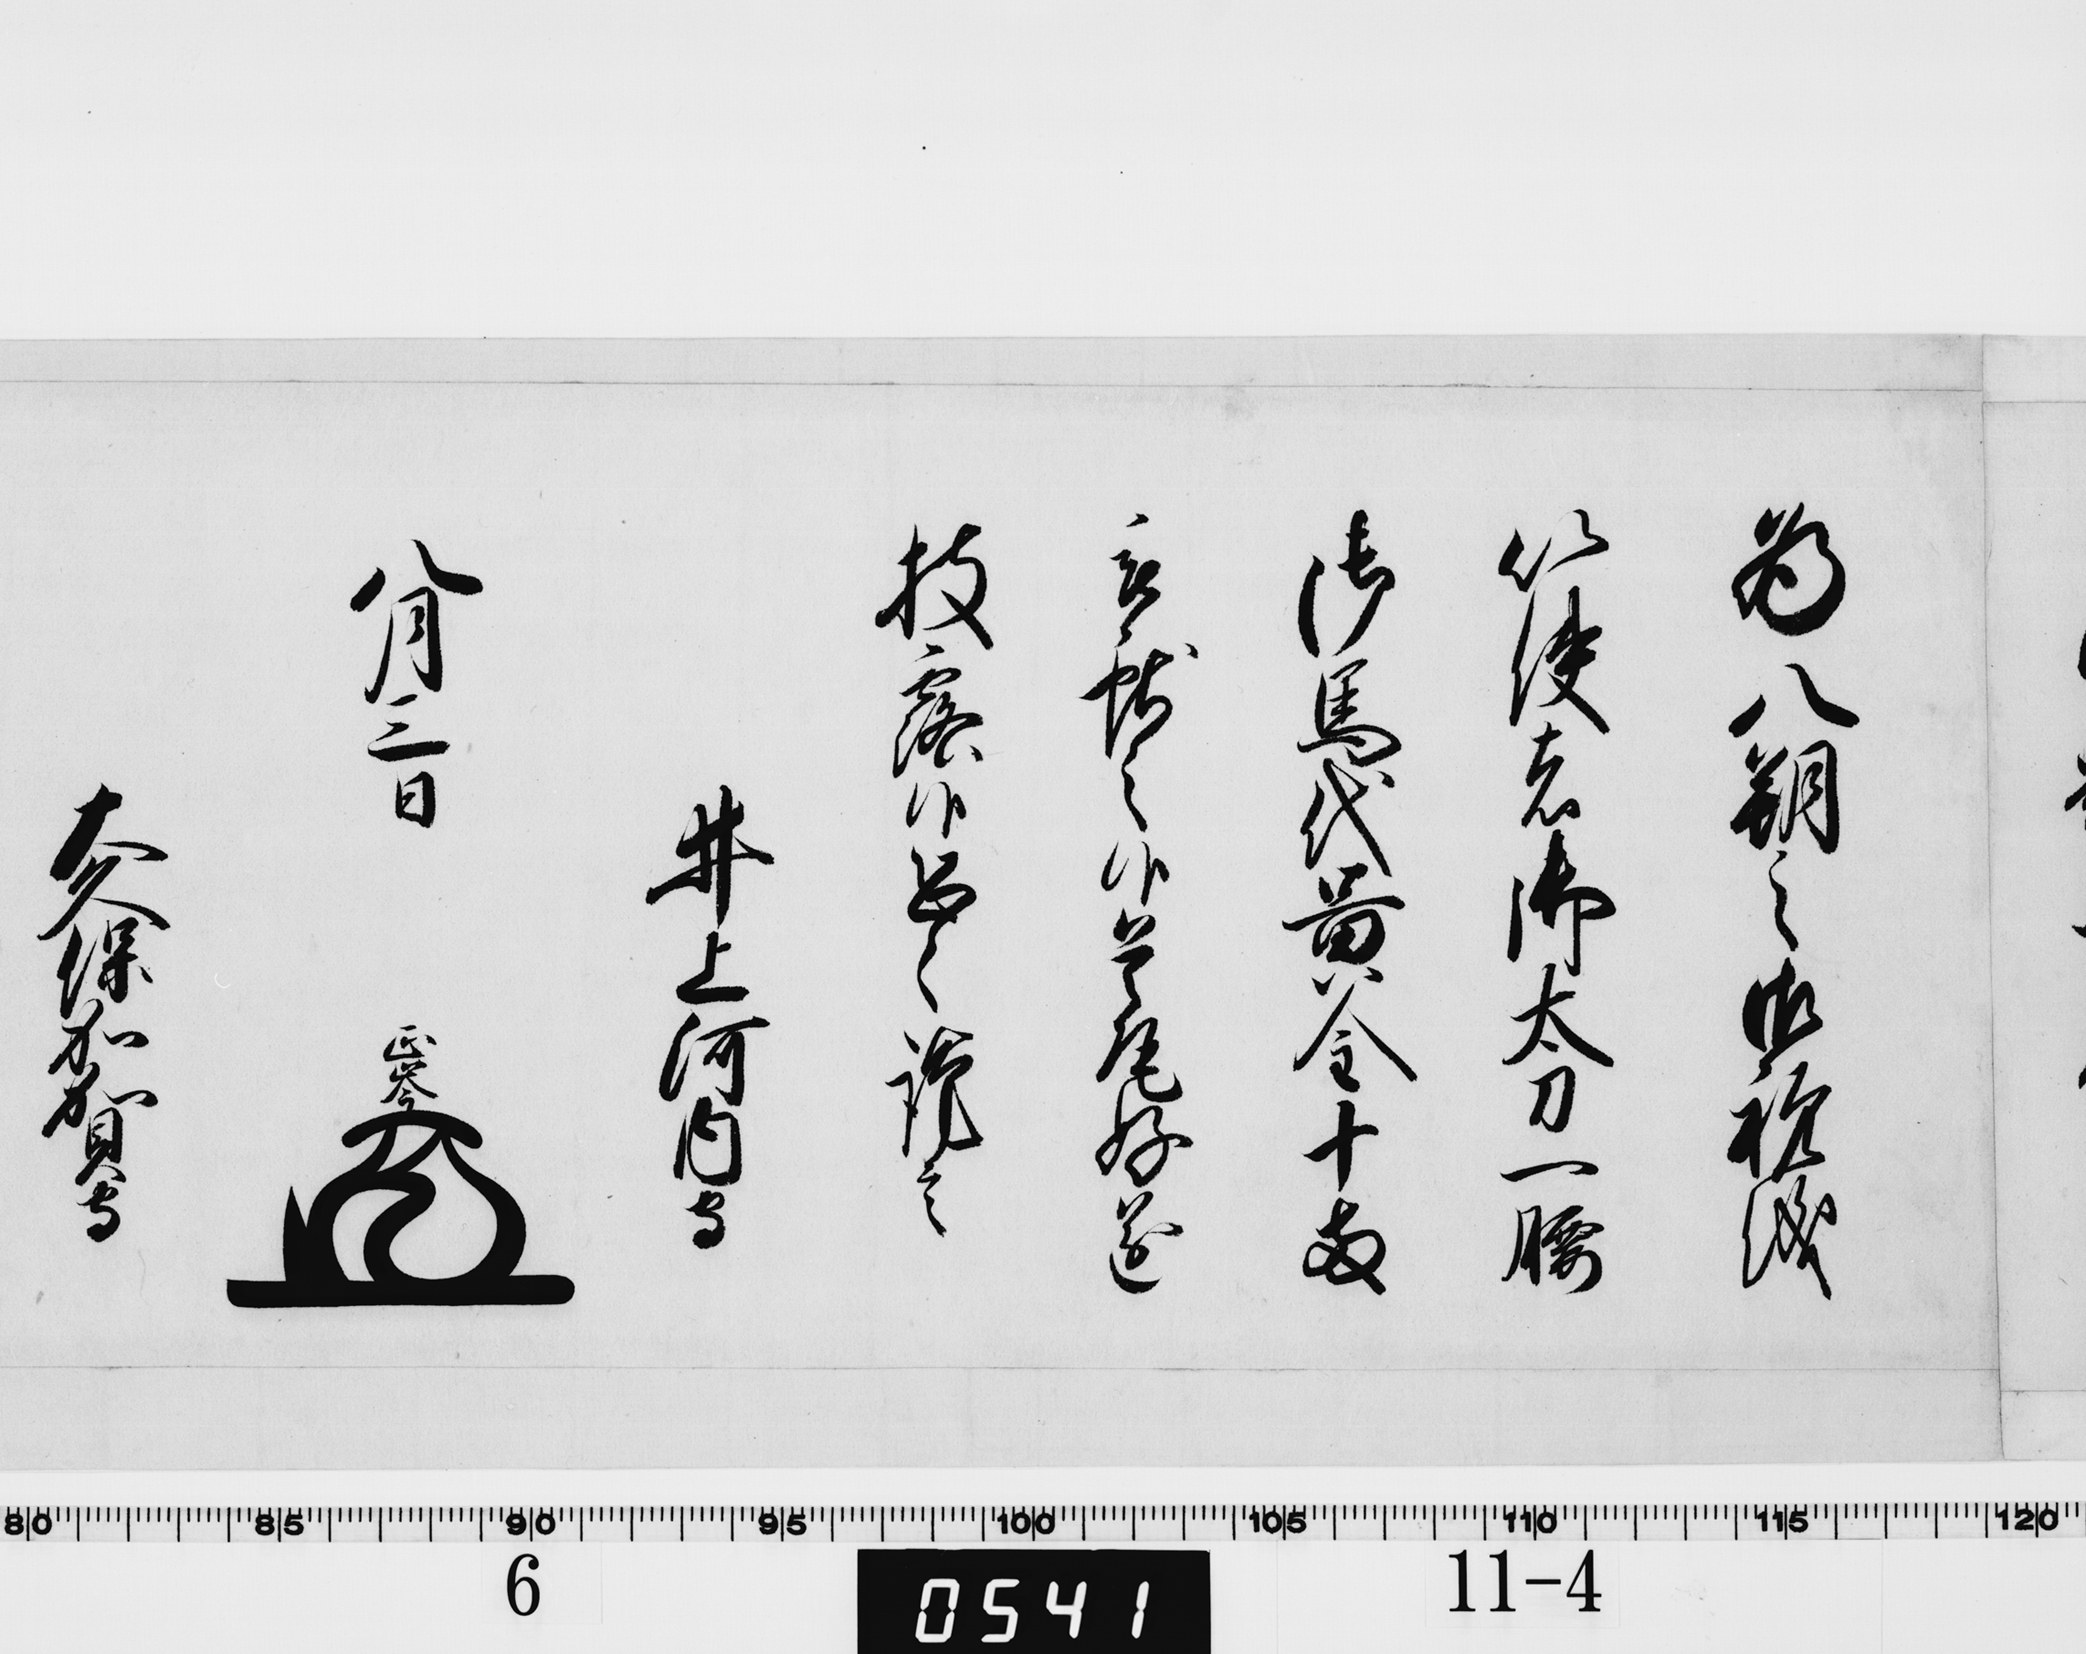 為八朔之御祝儀
以使者御太刀一腰
御馬代黄金十両
被献之候首尾好遂
披露候恐々謹言
井上河内守
八月三日 正岑
大久保加賀守
80 85 90 95 100 105 110 115 120
6 0541 11-4